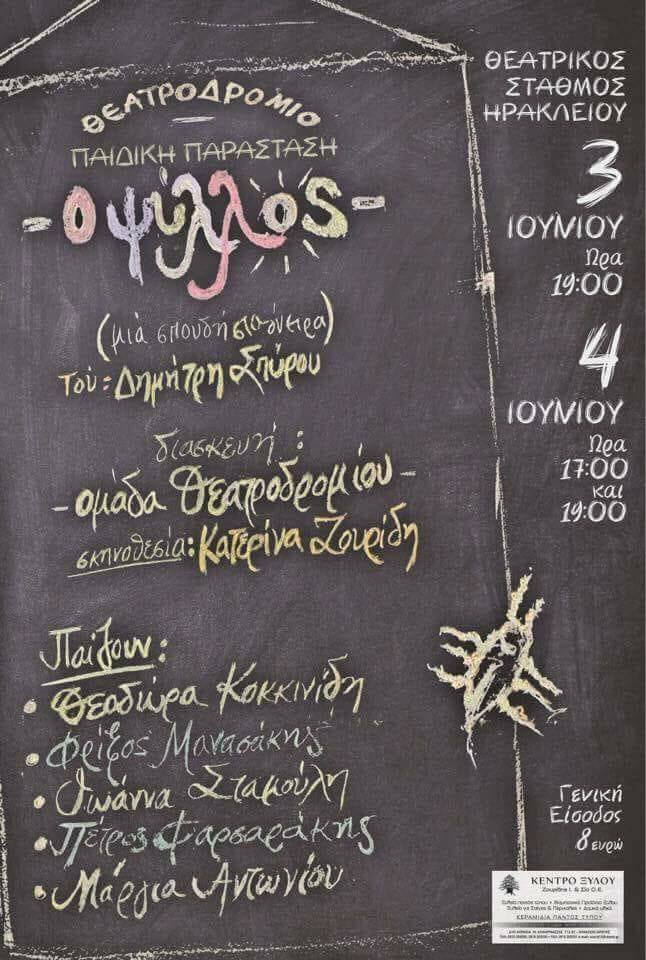 ΘΕΑΤΡΟΔΡΟΜΙΟ
ΠΑΙΔΙΚΗ ΠΑΡΑΣΤΑΣΗ
- Ο ψύλλος -
(μιά σπουδή στα όνειρα)
Τού: Δημήτρη Σπύρου
διασκευή:
- ομάδα Θεατροδρομίου -
σκηνοθεσία: Κατερίνα Ζουρίδη
Παίζουν:
• Θεοδώρα Κοκκινίδη
• Φρίξος Μανασάκης
• Ιωάννα Σταμούλη
• Πέτρος Ψαρσαράκης
• Μάργια Αντωνίου
ΘΕΑΤΡΙΚΟΣ
ΣΤΑΘΜΟΣ
ΗΡΑΚΛΕΙΟΥ
3
ΙΟΥΝΙΟΥ
Ώρα
19:00
4
ΙΟΥΝΙΟΥ
Ώρα
17:00
και
19:00
Γενική
Είσοδος
8 ευρώ
ΚΕΝΤΡΟ ΞΥΛΟΥ
Ζουρίδης Ι. & Σία Ο.Ε.
ΚΕΡΑΜΙΔΙΑ ΠΑΝΤΟΣ ΤΥΠΟΥ